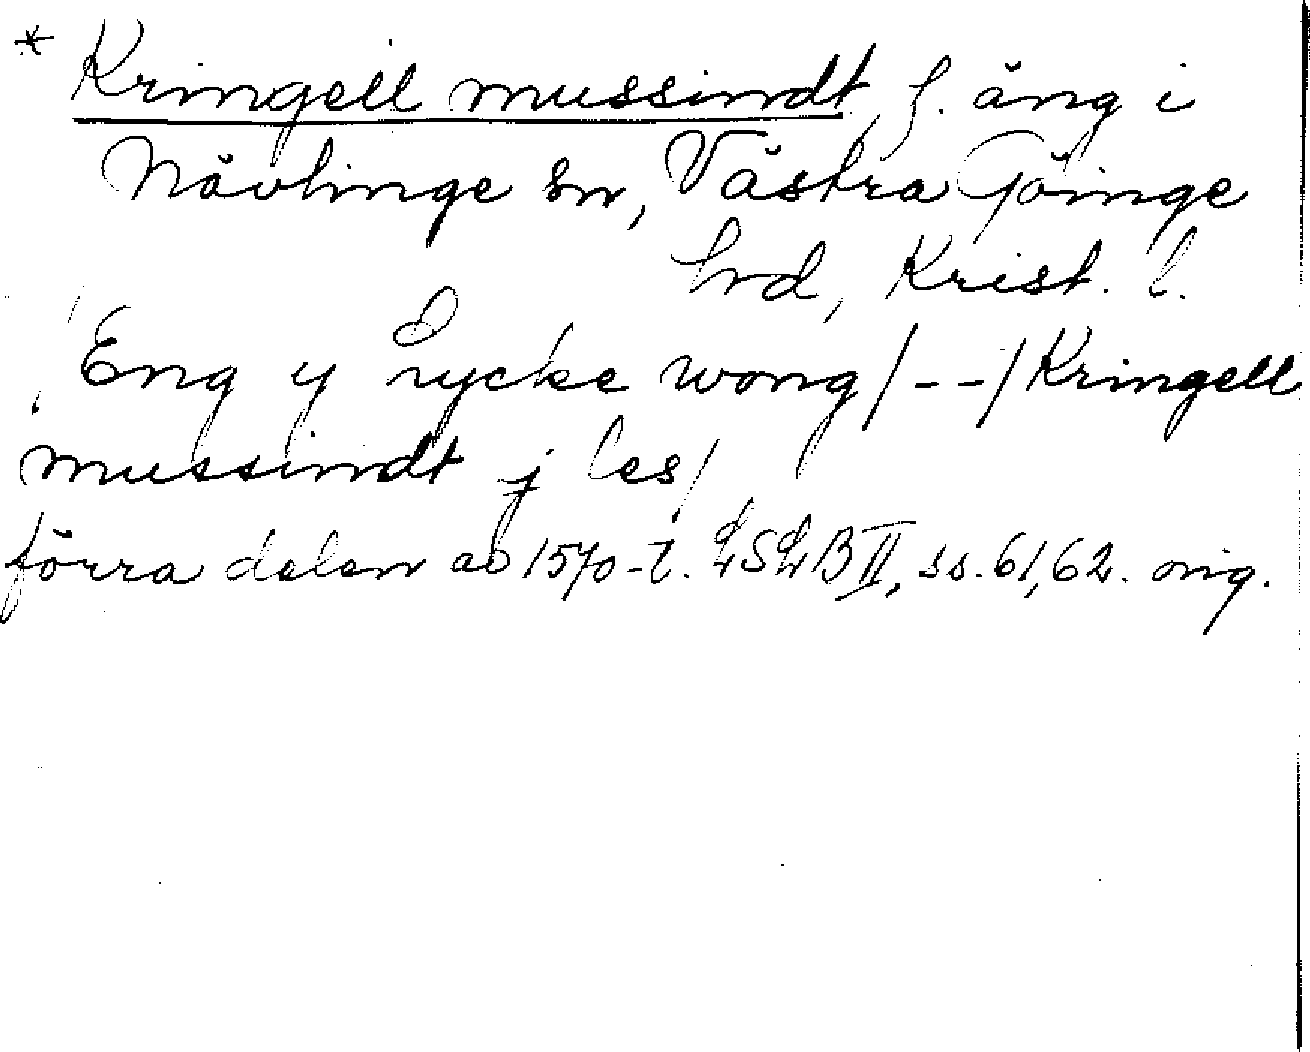 * Kringell mussindt, f. äng i
Nävlinge sn, Västra Göinge
hrd, Krist. l.
Eng y Rycke wong /--/ Kringell
mussindt j les/
förra delen av 1570-t. LSLB II, ss. 61, 62. orig.